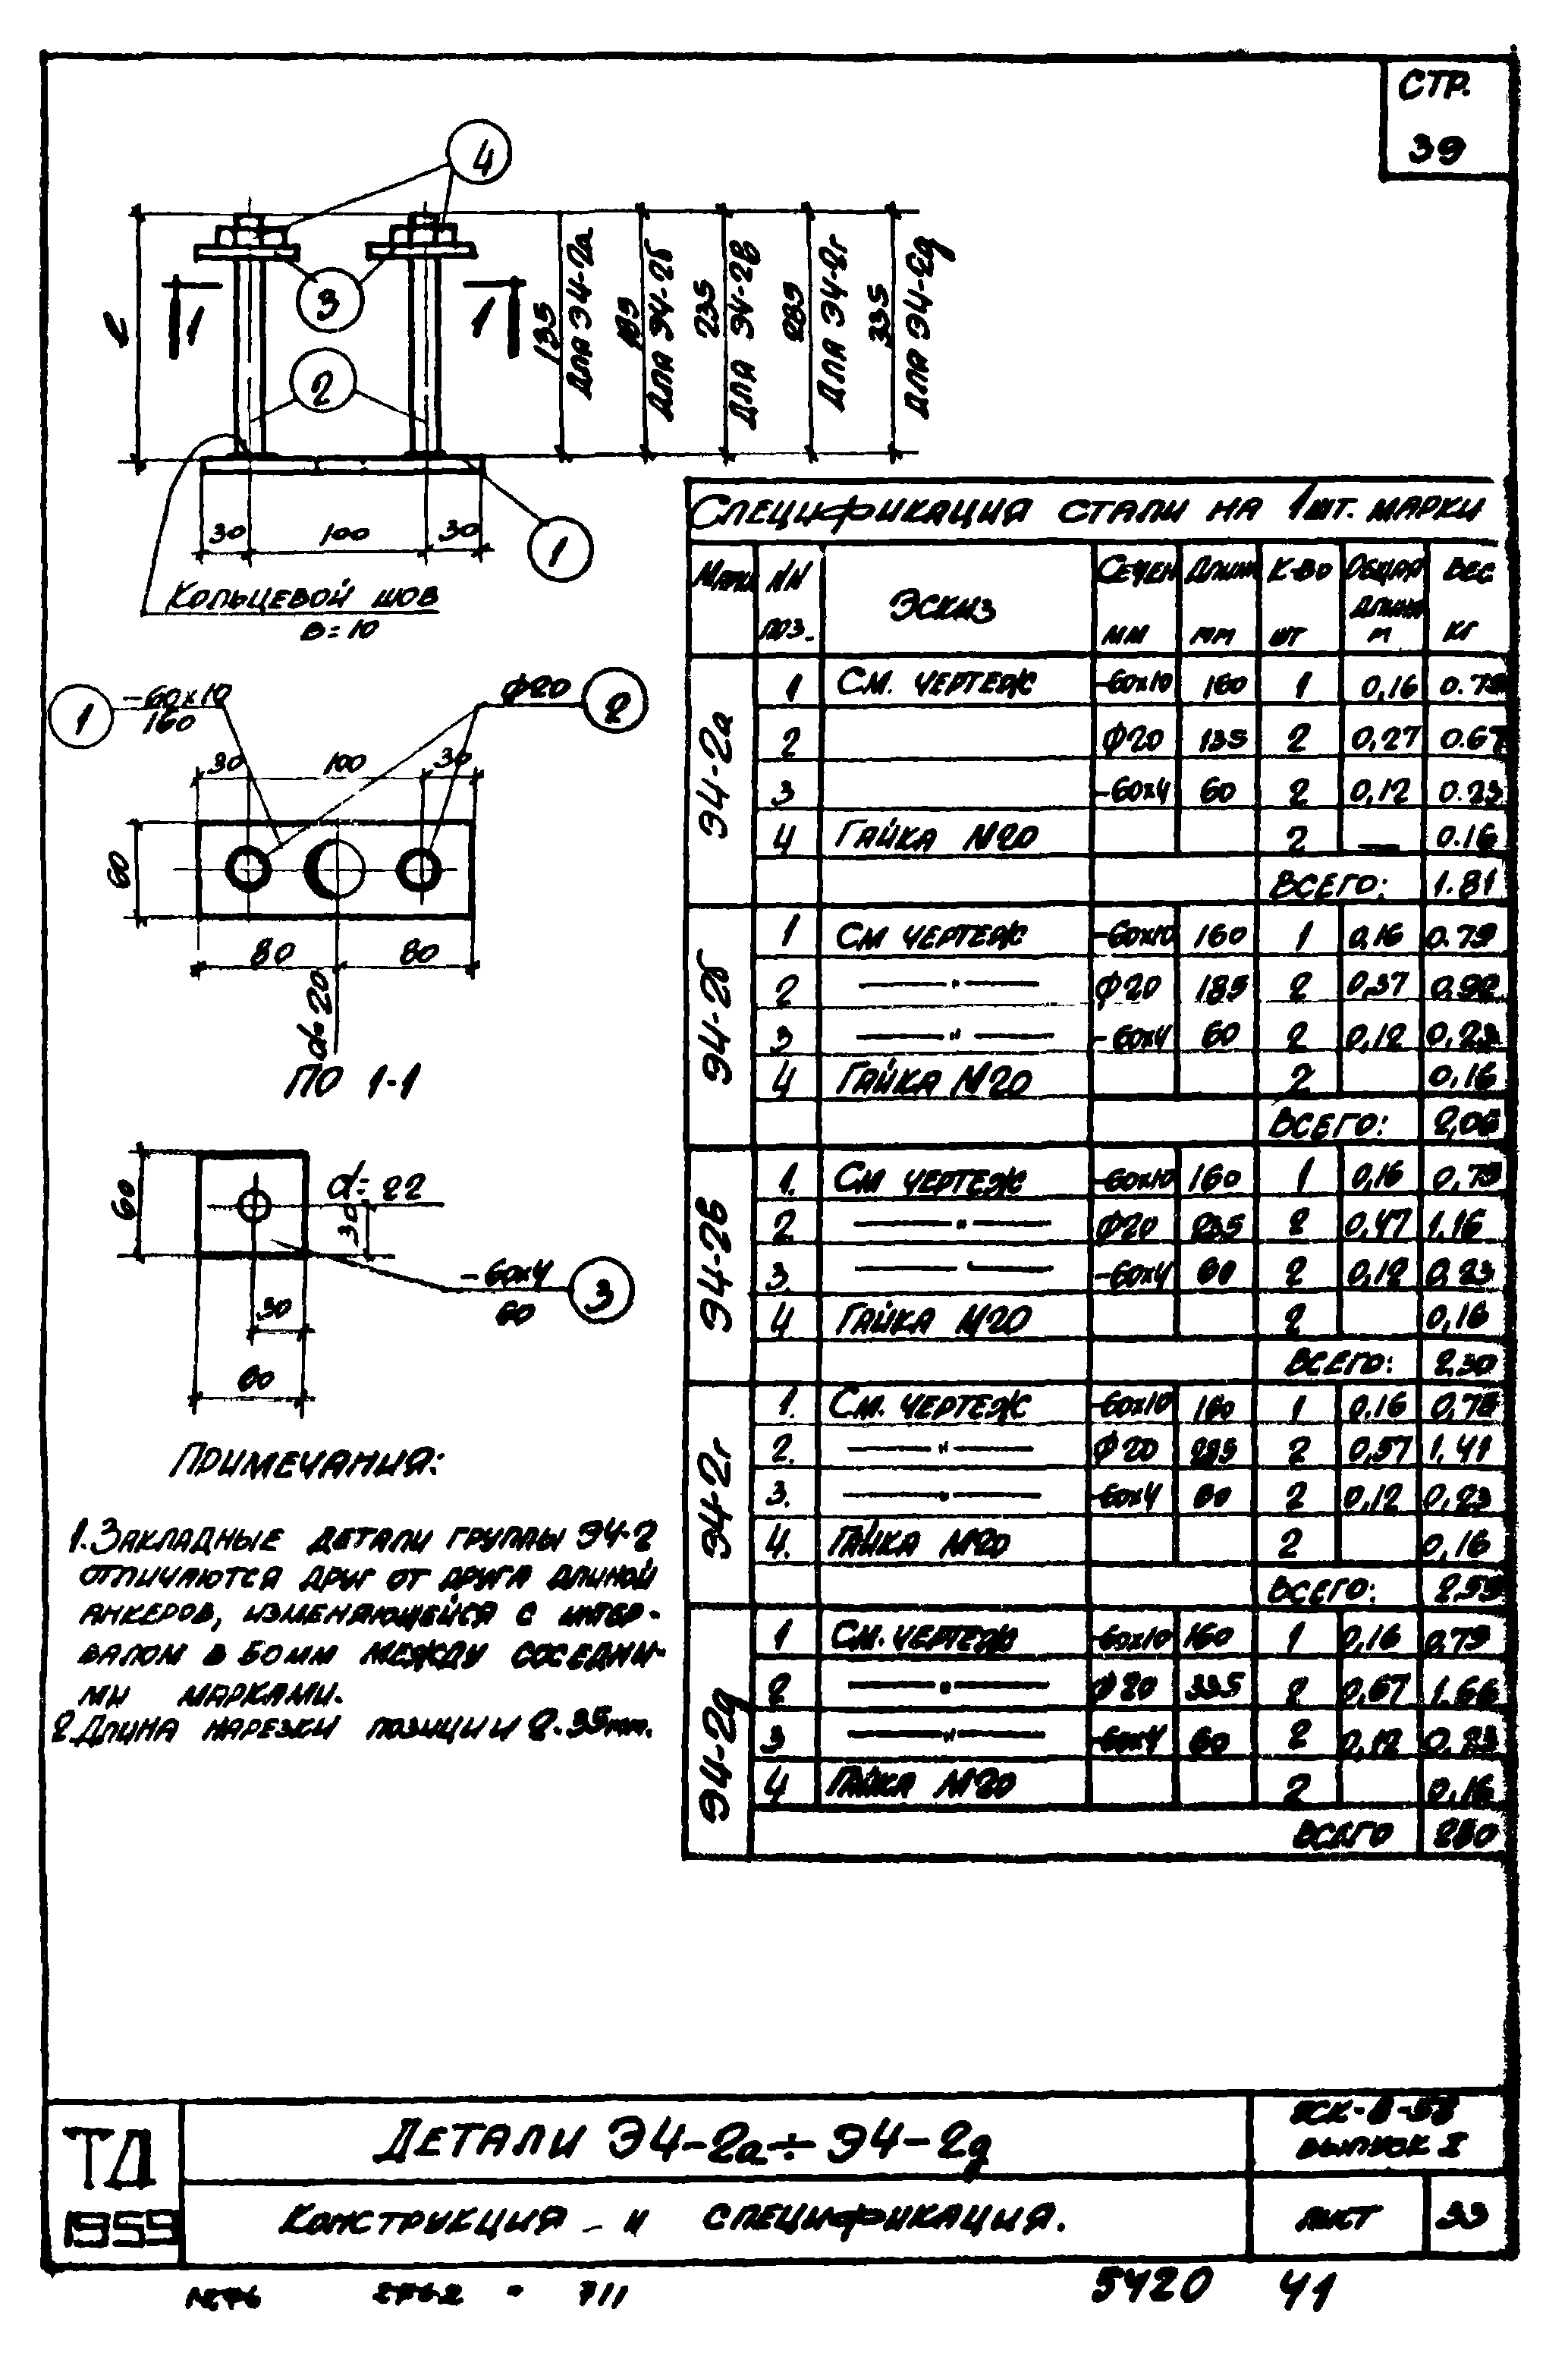 СТР.
39
4
3
2
1
1 1
ℓ
135
ДЛЯ Э4-2а
185
ДЛЯ Э4-2б
235
ДЛЯ Э4-2в
285
ДЛЯ Э4-2г
335
ДЛЯ Э4-2д
30 100 30
КОЛЬЦЕВОЙ ШОВ
в=10
1 -60х10
160
Ф20 2
30 100 30
60
80 80
d=20
ПО 1-1
60
d=22
30
-60х4
60
3
30
60
ПРИМЕЧАНИЯ:
1. ЗАКЛАДНЫЕ ДЕТАЛИ ГРУППЫ Э4-2
ОТЛИЧАЮТСЯ ДРУГ ОТ ДРУГА ДЛИНОЙ
АНКЕРОВ, ИЗМЕНЯЮЩЕЙСЯ С ИНТЕР-
ВАЛОМ В 50 ММ МЕЖДУ СОСЕДНИ-
МИ МАРКАМИ.
2. ДЛИНА НАРЕЗКИ ПОЗИЦИИ 2-35мм.
СПЕЦИФИКАЦИЯ СТАЛИ НА 1 ШТ. МАРКИ
МАРКИ NN ПОЗ. ЭСКИЗ СЕЧЕН ММ ДЛИНА ММ К-ВО ШТ ОБЩАЯ ДЛИНА М ВЕС КГ
Э4-2а
1 СМ. ЧЕРТЕЖ -60х10 160 1 0,16 0.79
2 Ф20 135 2 0,27 0.67
3 -60х4 60 2 0,12 0.23
4 ГАЙКА М20 2 — 0.16
ВСЕГО: 1.81
Э4-2б
1 СМ ЧЕРТЕЖ -60х10 160 1 0,16 0.79
2 —"— Ф20 185 2 0,37 0,92
3 —"— -60х4 60 2 0,12 0,23
4 ГАЙКА М20 2 0,16
ВСЕГО: 2,06
Э4-2в
1. СМ ЧЕРТЕЖ -60х10 160 1 0,16 0,79
2. —"— Ф20 235 2 0,47 1.16
3. —"— -60х4 60 2 0,12 0,23
4 ГАЙКА М20 2 0,16
ВСЕГО: 2,30
Э4-2г
1. СМ. ЧЕРТЕЖ -60х10 160 1 0,16 0,79
2. —"— Ф20 285 2 0,57 1,41
3. —"— -60х4 60 2 0,12 0,23
4. ГАЙКА М20 2 0,16
ВСЕГО: 2,59
Э4-2д
1 СМ. ЧЕРТЕЖ -60х10 160 1 0,16 0,79
2 —"— Ф20 335 2 0,67 1.66
3 —"— -60х4 60 2 0,12 0,23
4 ГАЙКА М20 2 0,16
ВСЕГО 280
ТД
1959
ДЕТАЛИ Э4-2а÷Э4-2д
КОНСТРУКЦИЯ - И СПЕЦИФИКАЦИЯ.
ВЫПУСК II
ЛИСТ 33
2762 - 711
5420 41